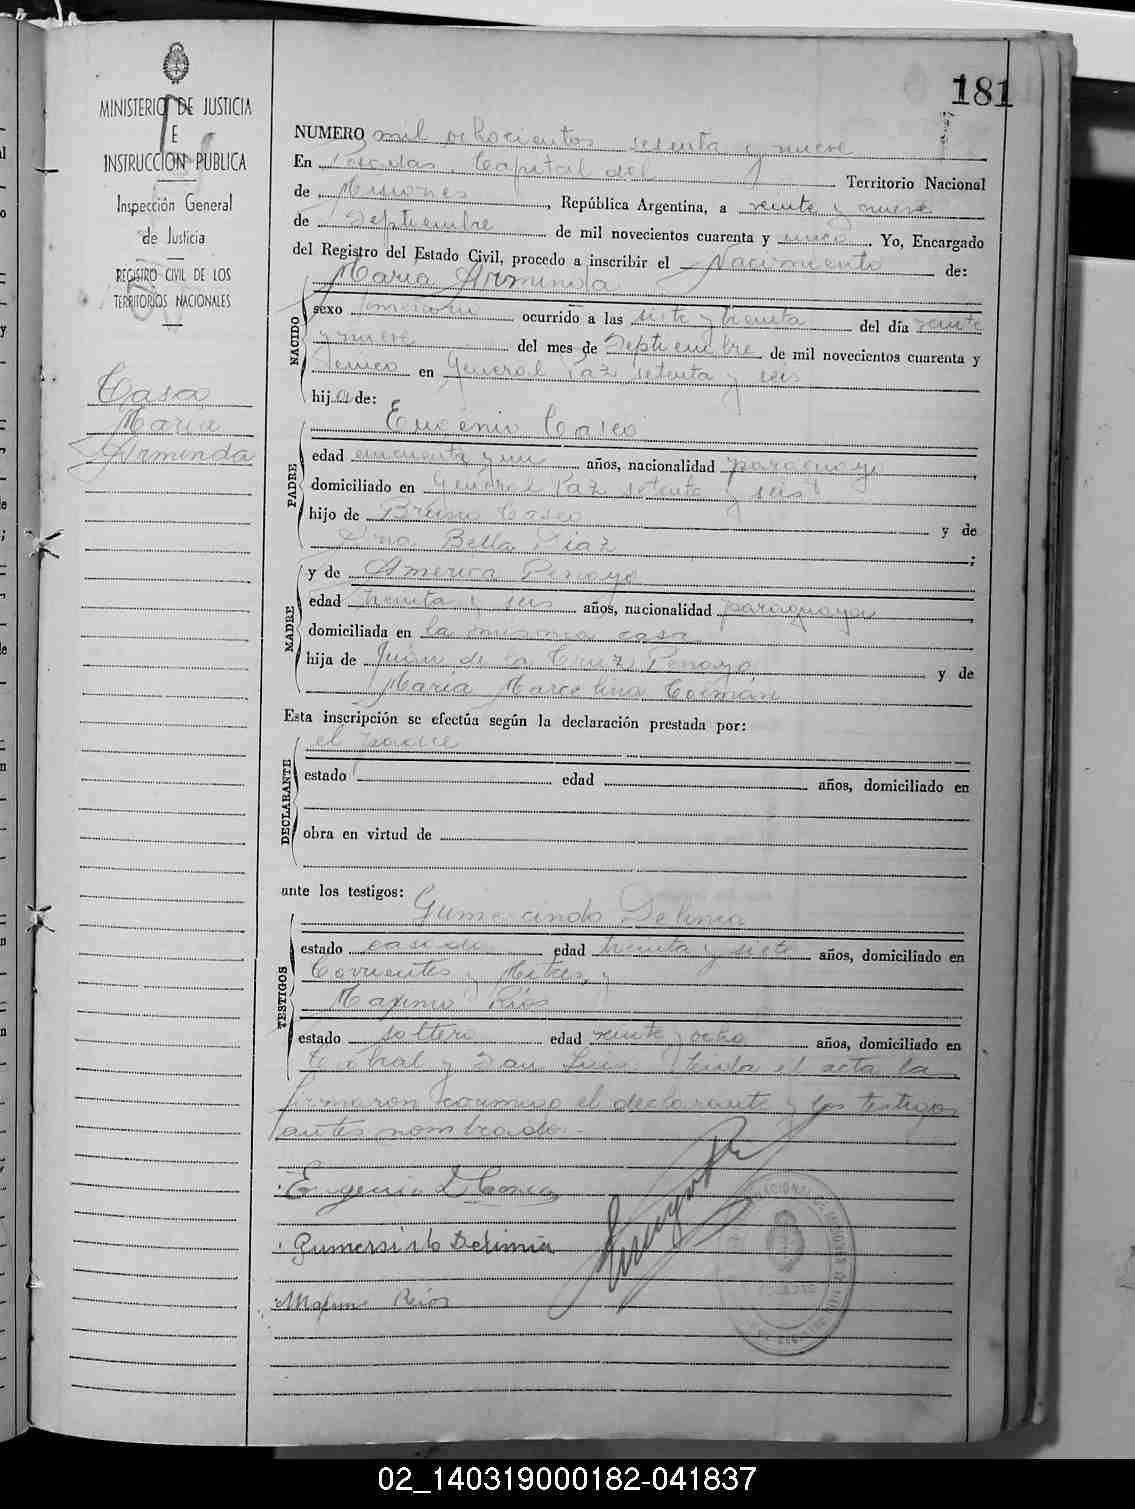 181
MINISTERIO DE JUSTICIA
E
INSTRUCCIÓN PUBLICA
Inspección General
de Justicia
REGISTRO CIVIL DE LOS
TERRITORIOS NACIONALES
Casco
Maria
Arminda
NUMERO mil ochocientos sesenta y nueve
En Posadas, Capital del Territorio Nacional
de Misiones, República Argentina, a veinte y nueve
de Septiembre de mil novecientos cuarenta y cinco. Yo, Encargado
del Registro del Estado Civil, procedo a inscribir el Nacimiento de:
Maria Arminda
NACIDO
sexo femenino ocurrido a las siete y treinta del día veinte
y nueve del mes de Septiembre de mil novecientos cuarenta y
cinco en General Paz setenta y seis
hija de:
Eugenio Casco
PADRE
edad cincuenta y un años, nacionalidad paraguayo,
domiciliado en General Paz setenta y seis
hijo de Bruno Casco y de
Bella Diaz;
y de America Penayo
MADRE
edad treinta y seis años, nacionalidad paraguaya,
domiciliada en la misma casa
hija de Juan de la Cruz Penayo y de
Maria Marcelina Colmán
Esta inscripción se efectúa según la declaración prestada por:
el padre
DECLARANTE
estado edad años, domiciliado en
obra en virtud de
ante los testigos:
Gumercindo Delimia
TESTIGOS
estado casado edad treinta y siete años, domiciliado en
Corrientes y Mitre, y
Maximo Rios
estado soltero edad veinte y ocho años, domiciliado en
y San Luis. Leida el acta la
firmaron conmigo el declarante y los testigos
antes nombrados.-
Eugenio D Casco
Gumersindo Delimia
Maximo Rios
02_140319000182-041837